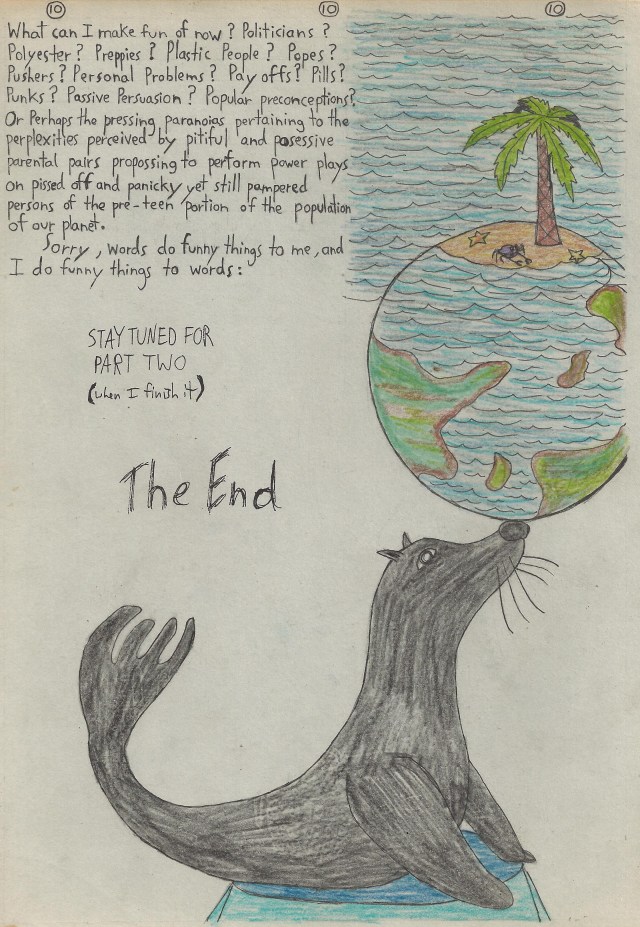 10 10 10
What can I make fun of now? Politicians?
Polyester? Preppies? Plastic People? Popes?
Pushers? Personal Problems? Pay offs? Pills?
Punks? Passive Persuasion? Popular preconceptions?
Or Perhaps the pressing paranoias pertaining to the
perplexities perceived by pitiful and posessive
parental pairs propossing to perform power plays
on pissed off and panicky yet still pampered
persons of the pre-teen portion of the population
of our planet.
Sorry, words do funny things to me, and
I do funny things to words:
STAY TUNED FOR
PART TWO
(when I finish it)
The End